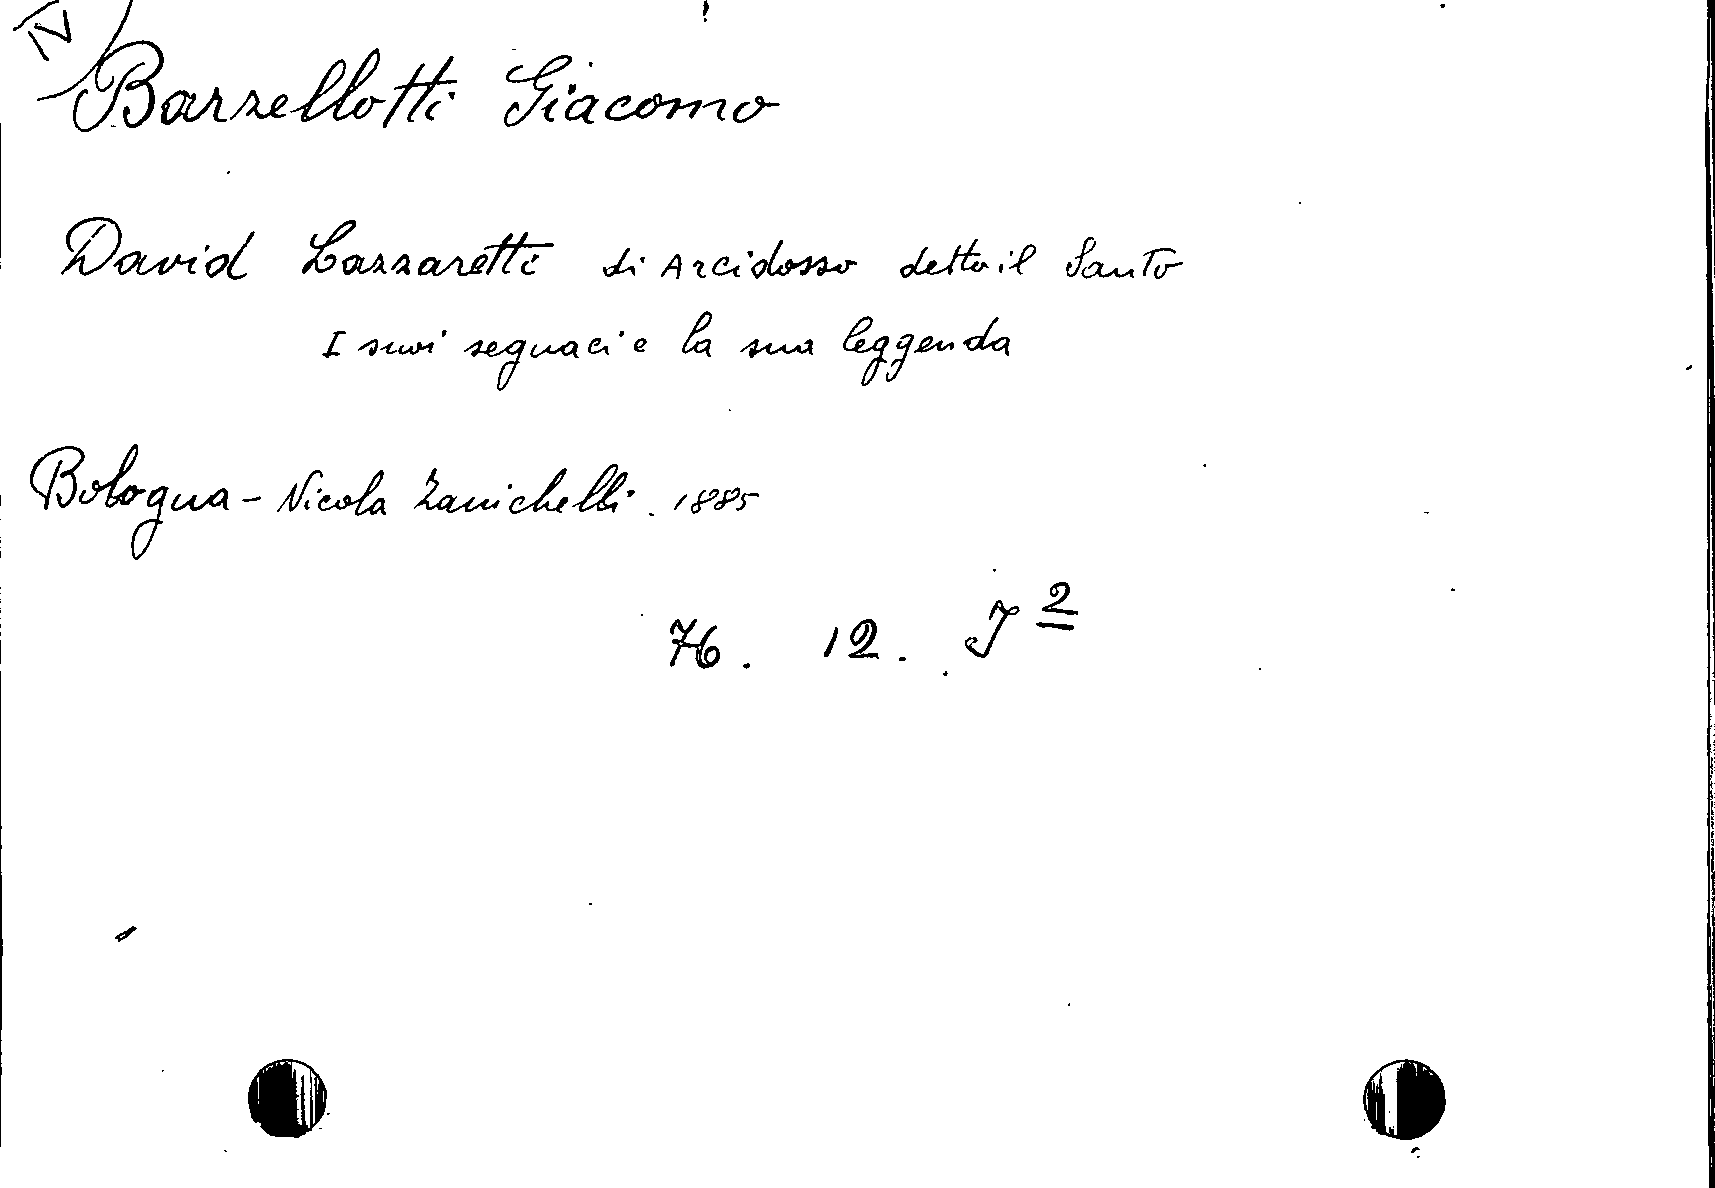 IV
Barzellotti Giacomo
David Lazzaretti di Arcidosso detto il Santo
I suoi seguaci e la sua leggenda
Bologna - Nicola Zanichelli. 1885
76. 12. J 2